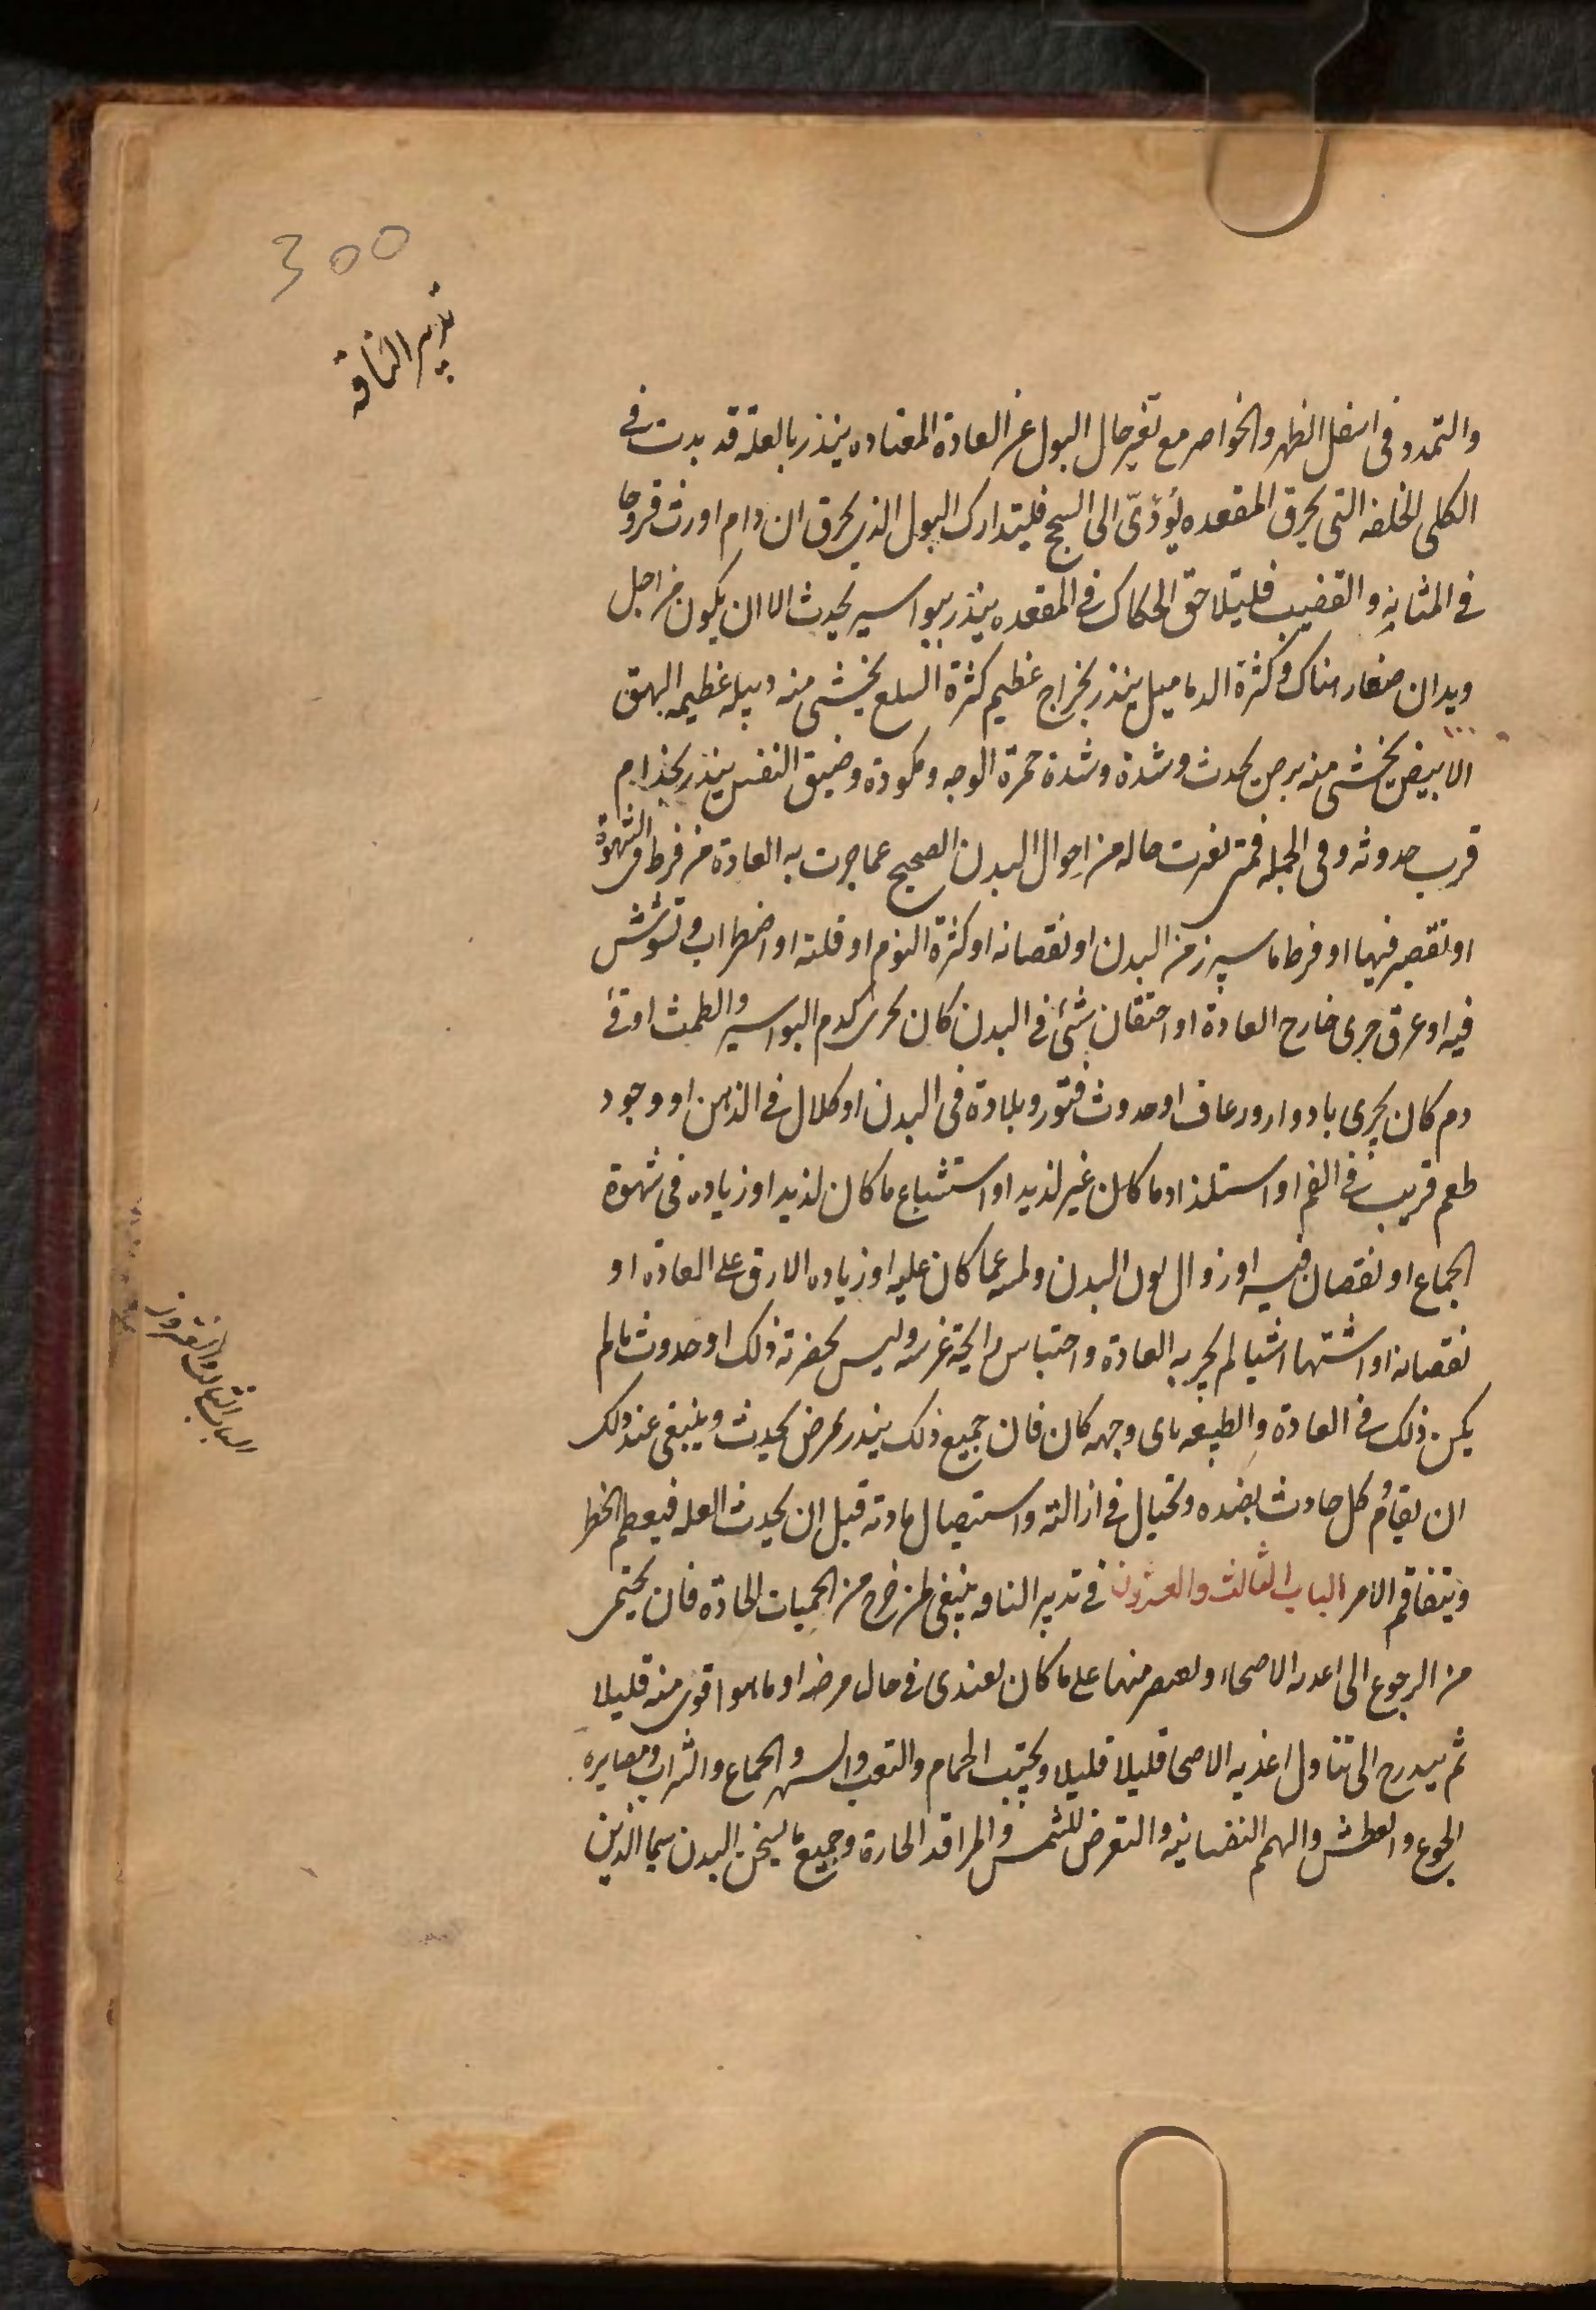 300
تدبير الناقه
والتمدد في اسفل الظهر والخواصر مع تغير حال البول عن العادة المعتاده ينذر بالعلة قد بدت في
الكلى الخلفه التي يحرق المقعده يؤدّى الى السحج فليتدارك البول الذي يحرق ان دام اورث قروحا
في المثانة والقضيب فليتلاحق الحكاك في المقعده ينذر ببواسير يحدث الا ان يكون من اجل
ديدان صغار هناك وكثرة الدماميل ينذر بخراج عظيم كثرة السلع يخشى منه دبيله عظيمه البهق
الابيض يخشى منه برص يحدث وشدة وشدة حمرة الوجه وكمودة وضيق النفس ينذر بجذام
قرب حدوثه وفي الجمله فمتى تغيرت حاله من احوال البدن الصحيح عما جرت به العادة من فرط في الشهوة
او تقصير فيها او فرط ما يبرز من البدن او نقصانه او كثرة النوم او قلته او اضطراب وتشوش
فيه او عرق جرى خارج العادة او احتقان شئ في البدن كان يجرى كدم البواسير والطمث او قئ
دم كان يجرى بادوار ورعاف او حدوث فتور وبلادة في البدن او كلال في الذهن او وجود
طعم قريب في الفم او استلذاذ ما كان غير لذيد او استشباع ما كان لذيد او زياده في شهوة
الجماع او نقصان فيه او زوال لون البدن ولمسه عما كان عليه او زياده الارق على العادة او
نقصانه او اشتها اشيا لم يجر به العادة واحتباس رايحة غريبه وليس بحضرته ذلك او حدوث ما لم
يكن ذلك في العادة والطبيعه باى وجهه كان فان جميع ذلك ينذر بمرض يحدث وينبغى عند ذلك
ان يقاوم كل حادث بضده ويحتال في ازالته واستيصال مادته قبل ان يحدث العله فيعظم الخطر
ويتفاقم الامر الباب الثالث والعشرون في تدبير الناقه ينبغي لمن خرج من الحميات الحادة فان يحتمى
من الرجوع الى اغذيه الاصحاء ويقصر منها على ما كان يغتذى في حال مرضه او ما هو اقوى منه قليلا
ثم يتدرج الى تناول اغذيه الاصحا قليلا قليلا ويجتنب الحمام والتعب والسهر والجماع والشراب ومصابره
الجوع والعطش والهم النفسانية والتعرض للشمس والمراقد الحارة وجميع ما يسخن البدن سيما الذين
الباب الثالث والعشرون